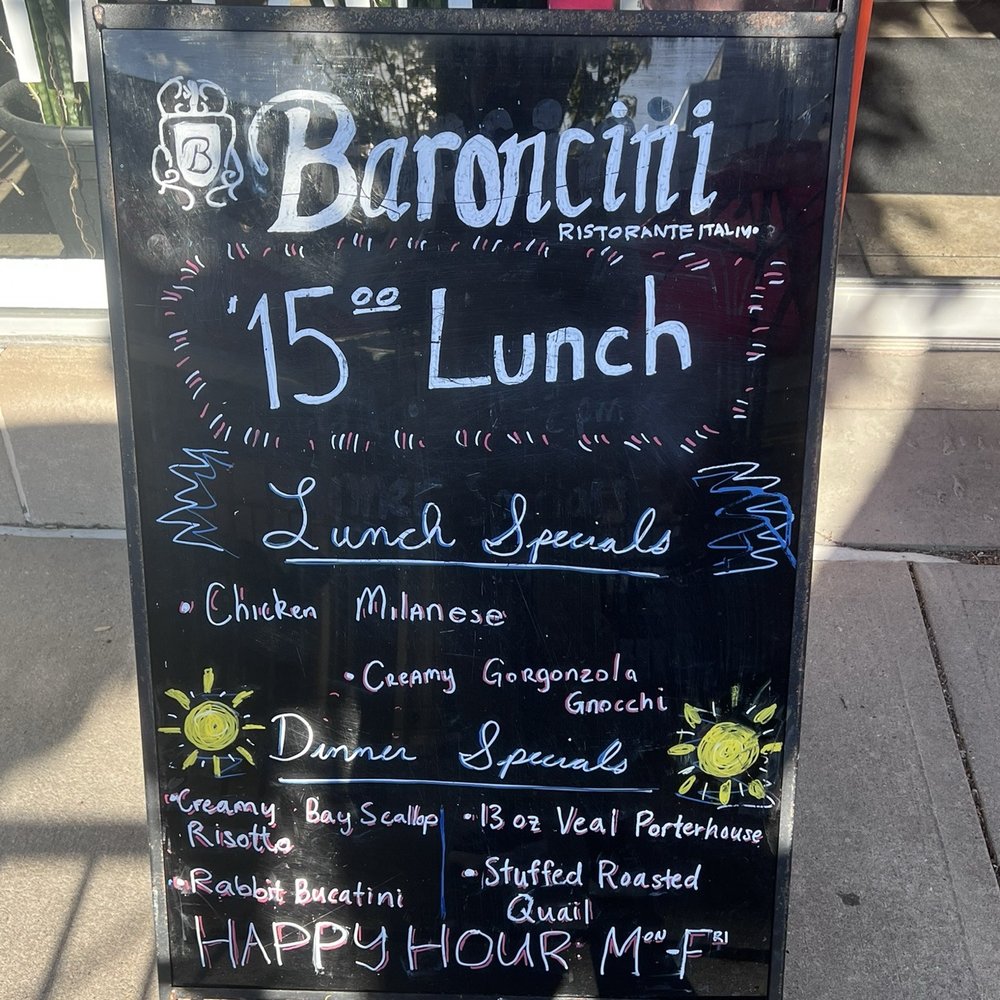 B
Baroncini
RISTORANTE ITALIANO
$15.00 Lunch
Lunch Specials
• Chicken Milanese
• Creamy Gorgonzola
Gnocchi
Dinner Specials
• Creamy Bay Scallop
Risotto
• Rabbit Bucatini
• 13 oz Veal Porterhouse
• Stuffed Roasted
Quail
HAPPY HOUR: MON-FRI